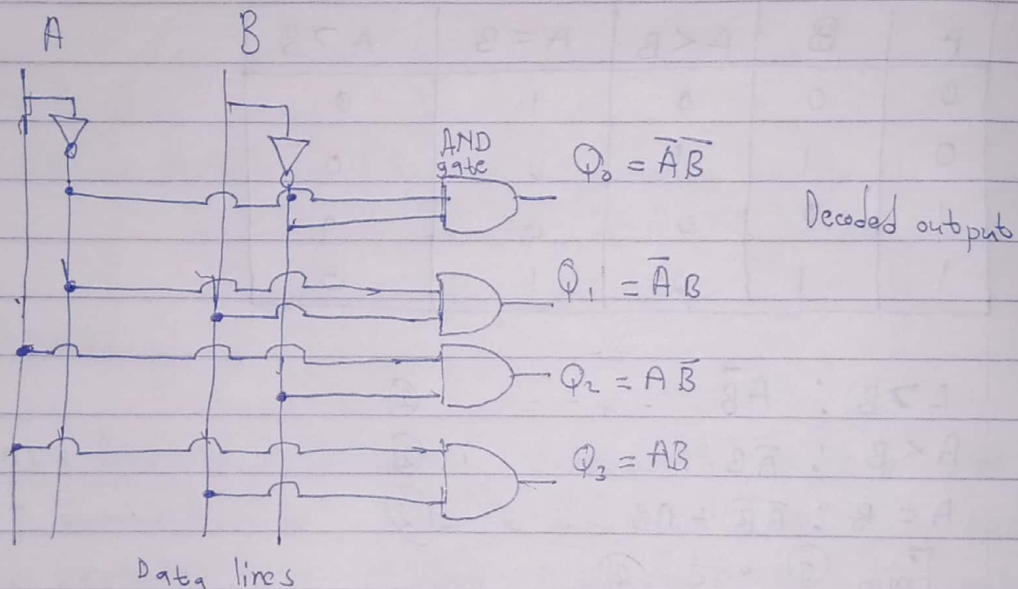 A B
AND
gate
Q₀ = A̅ B̅
Decoded output
Q₁ = A̅ B
Q₂ = A B̅
Q₃ = AB
Data lines